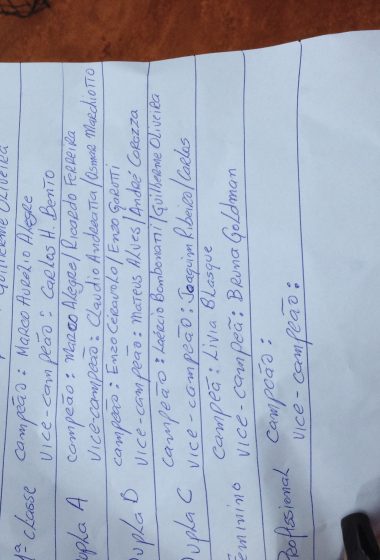 Guilherme Oliveira
1ª classe campeão: Marco Aurélio Alegre
vice-campeão: Carlos H. Bento
Dupla A campeão: Marco Alegre/Ricardo Ferreira
vice-campeão: Claudio Andreatta/Osmar Marchiotto
Dupla B campeão: Enzo Ceravolo/Enzo Garotti
vice-campeão: Mateus Alves/André Corazza
Dupla C campeão: Laércio Bombonatti/Guilherme Oliveira
vice-campeão: Joaquim Ribeiro/Carlos
Feminino campeã: Livia Blasque
vice-campeã: Bruna Goldman
Profissional campeão:
vice-campeão: